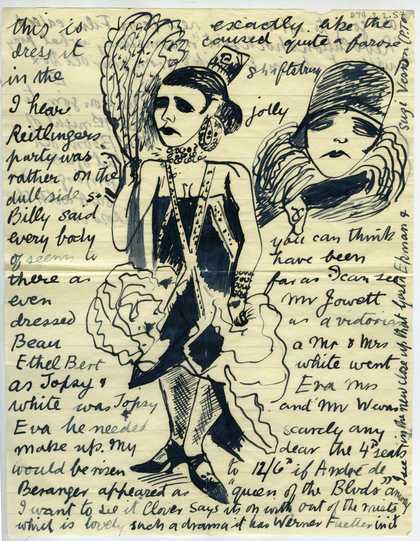 this is exactly like the
dress it caused quite a farore
in the Shaftsbury
I hear jolly
Reitlingers
party was
rather on the
dull side so
Billy said
every body you can think
of seems have been
there as far as I can see
even Mr Jowett
dressed as a victoria
Beau a Mr & Mrs
Ethel Bert white went
as Topsy & Eva Mrs
white was Topsy and Mr W was
Eva he needed scarcely any
make up. My dear the 4d seats
would be risen to 12/6d if André de
Beranger appeared as "queen of the Blvds"
I want to see it Clover says its on with out of the
which is lovely such a drama it has Werner
I see in the new close up that Louis &